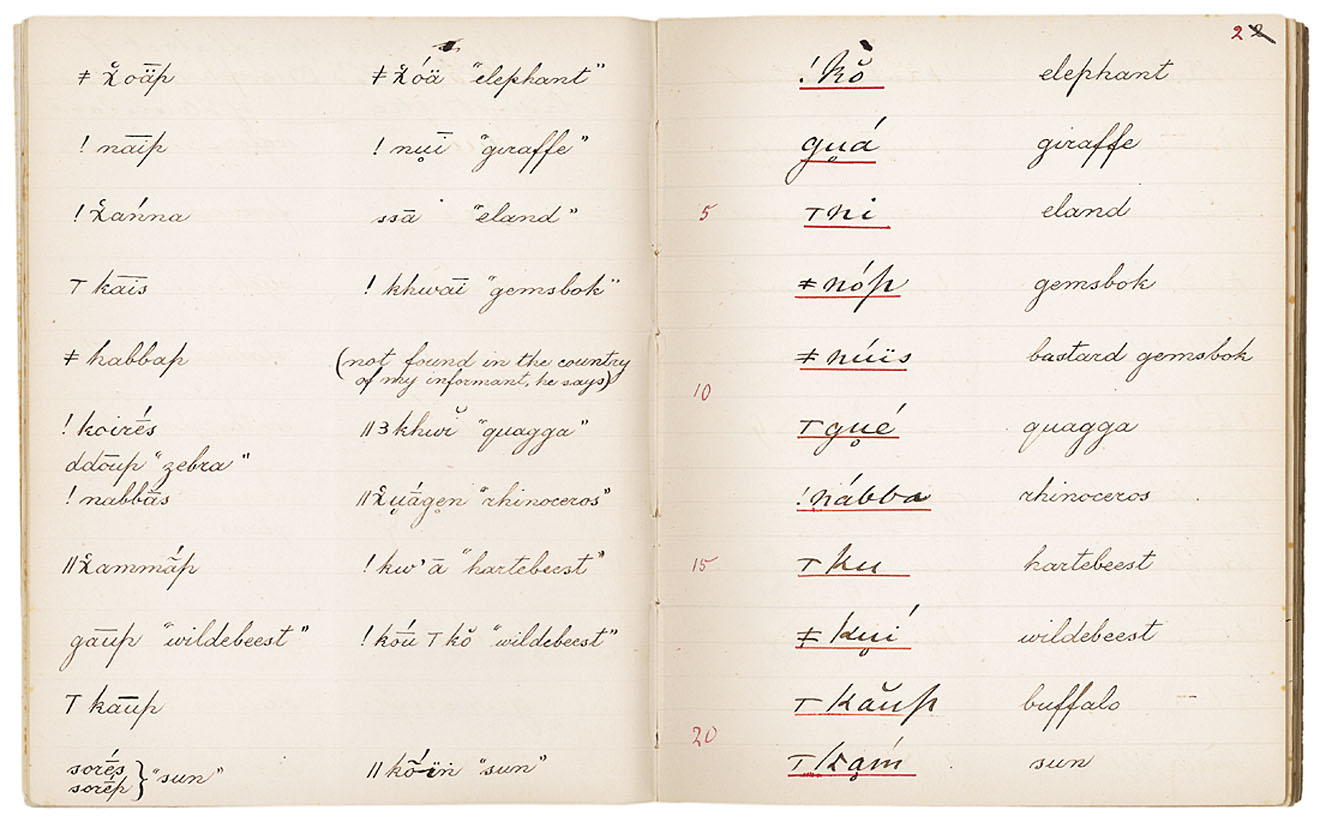 ǂ x̌oä̅p ǂ x̌óä "elephant"
! na̅i̅p ! nu̯i̅ "giraffe"
! x̌ańna ssā "eland"
T ka̅i̅s ! khwa̅i̅ "gemsbok"
ǂ habbap (not found in the country
of my informant, he says)
! koiré̅s ǁ3khwĭ "quagga"
ddo̅u̅p "zebra"
! nabbās ǁx̌u̯á̅gen "rhinoceros"
ǁx̌ammā́p ! kw'ā "hartebeest"
ga̅u̅p "wildebeest" ! kó̅u̅ T kŏ "wildebeest"
T ka̅u̅p
soré̅s
soré̅p } "sun" ǁ kṍ-ïṅ "sun"
2 2
! kŏ elephant
gu̯á giraffe
5 T ni eland
ǂ nóp gemsbok
ǂ núïs bastard gemsbok
10
T gu̯é quagga
! nábba rhinoceros
15 T ku hartebeest
ǂ ku̯í wildebeest
T kăŭp buffalo
20
T kąḿ sun